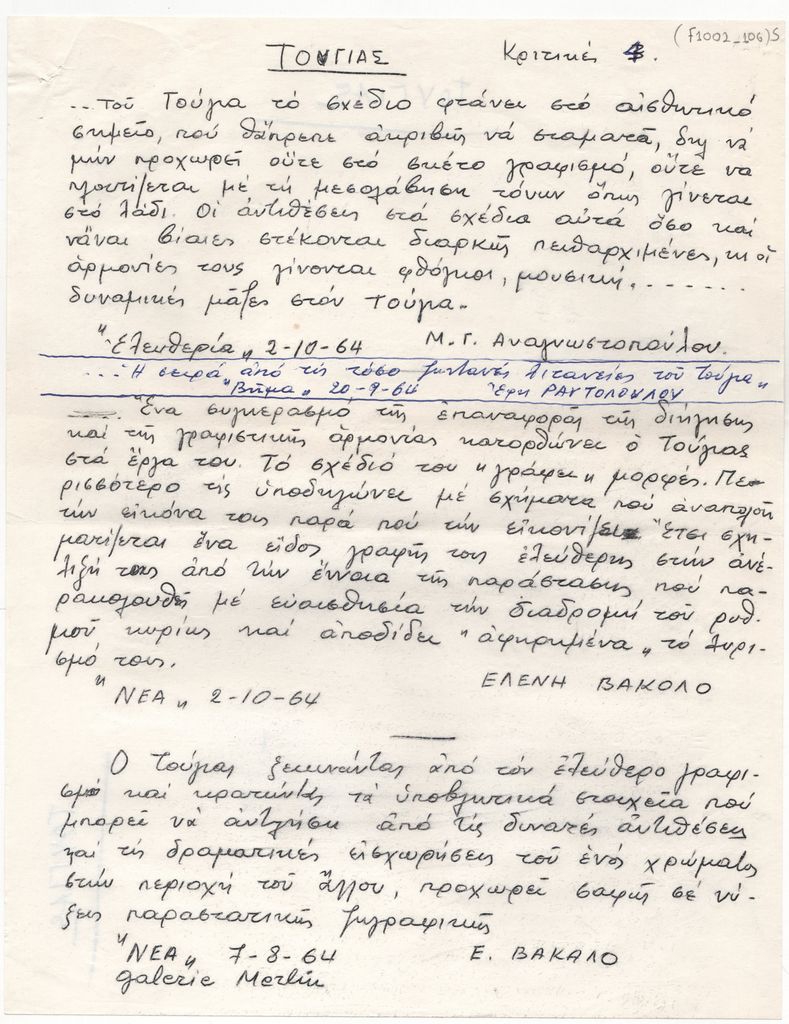 (F1002_106)S
ΤΟΥΓΙΑΣ Κριτικές 4.
...τοῦ Τούγια τό σχέδιο φτάνει στό αἰσθητικό
σημεῖο, πού θἄπρεπε ἀκριβῶς νά σταματᾶ, δηλ νά
μήν προχωρεῖ οὔτε στό σκέτο γραφισμό, οὔτε να
πλουτίζεται μέ τή μεσολάβηση τόνων ὅπως γίνεται
στό λάδι. Οἱ ἀντιθέσεις στά σχέδια αὐτά ὅσο καί
νἆναι βίαιες στέκονται διαρκῶς πειθαρχιμένες, κι οἱ
ἁρμονίες τους γίνονται φθόγγοι, μουσική.......
δυναμικές μάζες στόν Τούγια.
"Ἐλευθερία" 2-10-64 Μ.Γ. Αναγνωστοπούλου.
...Ἡ σειρά ἀπό τίς τόσο ζωντανές Λιτανείες τοῦ Τούγια"
"Βῆμα" 20-9-64 Ἔφη ΡΑΥΤΟΠΟΥΛΟΥ
Ἕνα συγκερασμό τῆς ἐπαναφορᾶς τῆς διήγησης
καί τῆς γραφιστικῆς ἁρμονίας κατορθώνει ὁ Τούγιας
στά ἔργα του. Τό σχέδιό του "γράφει" μορφές. Πε-
ρισσότερο τίς ὑποδηλώνει μέ σχήματα πού ἀναπολοῦν
τήν εἰκόνα τους παρά πού τήν εἰκονίζει Ἔτσι σχη-
ματίζεται ἕνα εἶδος γραφῆς τους ἐλεύθερης στήν ἀνέ-
λιξή τους ἀπό τήν ἔννοια τῆς παράστασης πού πα-
ρακολουθεῖ μέ εὐαισθησία τήν διαδρομή τοῦ ρυθ-
μοῦ κυρίως καί ἀποδίδει "ἀφηρημένα" τό λυρι-
σμό τους.
"ΝΕΑ" 2-10-64 ΕΛΕΝΗ ΒΑΚΟΛΟ
Ο Τούγιας ξεκινώντας ἀπό τόν ἐλεύθερο γραφι-
σμό καί κρατώντας τά ὑποβλητικά στοιχεῖα πού
μπορεῖ νά ἀντλήση ἀπό τίς δυνατές ἀντιθέσεις
καί τίς δραματικές εἰσχωρήσεις τοῦ ἑνός χρώματος
στήν περιοχή τοῦ ἄλλου, προχωρεῖ σαφῶς σέ νύ-
ξεις παραστατικῆς ζωγραφικῆς
"ΝΕΑ" 7-8-64 Ε. ΒΑΚΑΛΟ
Galerie Merlin